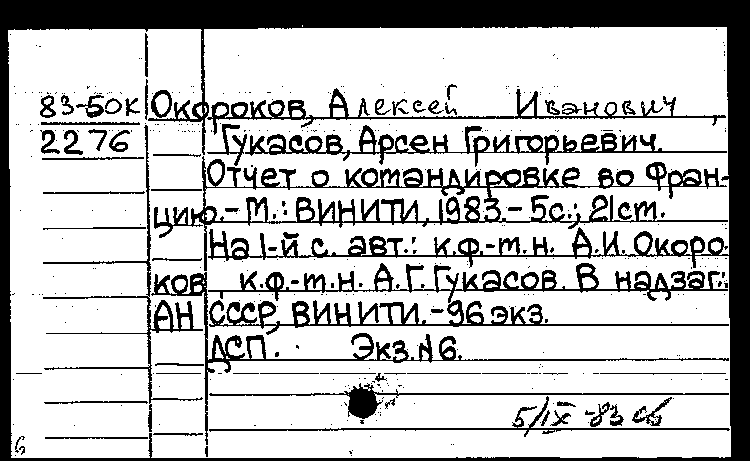 83-50К Окороков, Алексей Иванович,
2276 Гукасов, Арсен Григорьевич.
Отчет о командировке во Фран-
цию.- М.: ВИНИТИ, 1983.- 5с.; 21 cm.
На 1-й с. авт.: к.ф.-т.н. А.И. Окоро-
ков, к.ф.-т.н. А.Г. Гукасов. В надзаг.:
АН СССР, ВИНИТИ. - 96 экз.
ДСП. Экз. N 6.
5/IX-83 сб
6